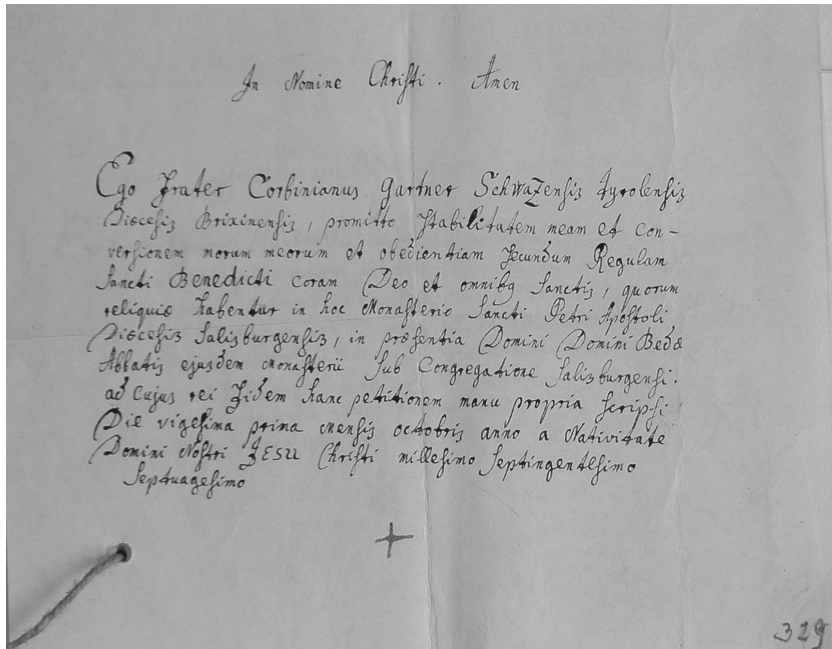 In Nomine Christi. Amen
Ego Frater Corbinianus Gartner Schwazensis Tyrolensis
Diœcesis Brixinensis, promitto Stabilitatem meam et con-
versionem morum meorum et obedientiam secundum Regulam
Sancti Benedicti coram Deo et omnibq Sanctis, quorum
reliquiæ habentur in hoc Monasterio Sancti Petri Apostoli
Diœcesis Salisburgensis, in præsentia Domini Domini Bedæ
Abbatis ejusdem Monasterii sub Congregatione Salisburgensi.
ad cujus rei Fidem hanc petitionem manu propria scripsi
Die vigesima prima mensis octobris anno a Nativitate
Domini Nostri JESU Christi millesimo Septingentesimo
Septuagesimo
329